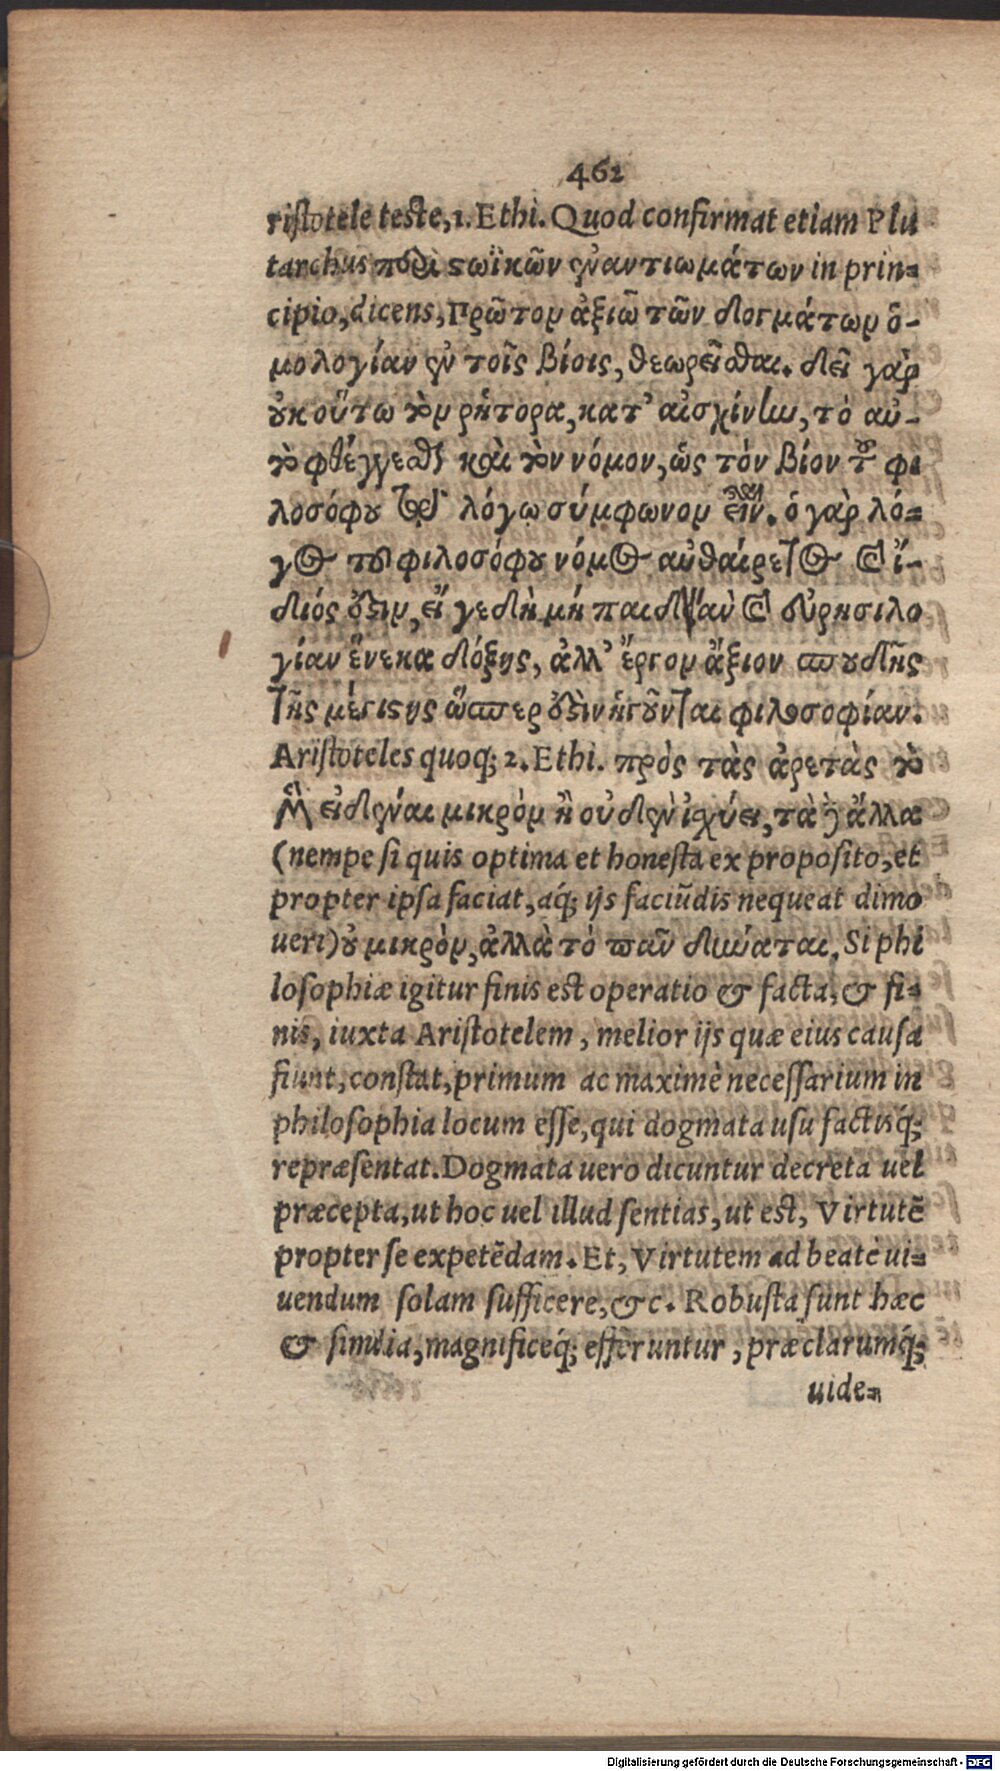 462
ristotele teste,1. Ethi. Quod confirmat etiam Plu
tarchus περὶ ςωϊκῶν ἐναντιωμάτων in prin=
cipio,dicens,Πρῶτον ἀξιῶ τῶν δογμάτων ὁ-
μολογίαν ἐν τοῖς βίοις, θεωρεῖσθαι. δεῖ γὰρ
οὐκ οὕτω τὸν ῥήτορα,κατ’ αἰσχίνην,τὸ αὐ-
τὸ φθέγγεσθαι καὶ τὸν νόμον,ὡς τὸν βίον τοῦ φι
λοσόφου τῷ λόγω σύμφωνον εἶναι. ὁ γὰρ λό=
γος τοῦ φιλοσόφου νόμος αὐθαίρετος καὶ ἴ-
διός ὅξιν, εἴ γε δὴ μὴ παιδιὰν καὶ εὑρησιλο
γίαν ἕνεκα δόξης, ἀλλ’ ἔργον ἄξιον σπουδῆς
τῆς μεγίςης ὥσπερ ὅξὶν ἡγοῦνται φιλοσοφίαν.
Aristoteles quoq; 2. Ethi. πρὸς τὰς ἀρετὰς τὸ
μὲν εἰδέναι μικρὸν ἢ οὐδὲν ἰχύει, τὰ δὲ ἄλλα
(nempe si quis optima et honesta ex proposito,et
propter ipsa faciat,aq́; ijs faciũdis nequeat dimo
ueri)οὐ μικρὸν,ἀλλὰ τὸ πᾶν δύναται. Si phi
losophiæ igitur finis est operatio & facta,& fi=
nis, iuxta Aristotelem, melior ijs quæ eius causa
fiunt,constat,primum ac maximè necessarium in
philosophia locum esse,qui dogmata usu factisq́;
repræsentat.Dogmata uero dicuntur decreta uel
præcepta,ut hoc uel illud sentias,ut est, Virtutẽ
propter se expetẽdam. Et, Virtutem ad beatè ui=
uendum solam sufficere,&c. Robusta sunt hæc
& similia,magnificeq́; efferuntur, præclarumq́;
uide=
Digitalisierung gefördert durch die Deutsche Forschungsgemeinschaft - DFG